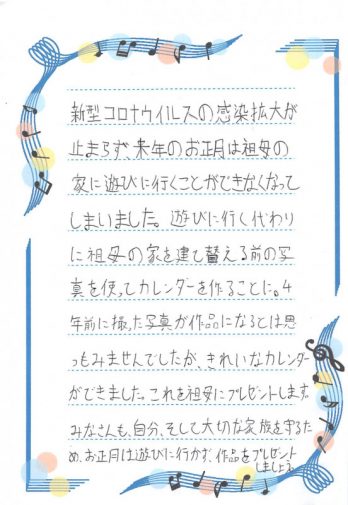 新型コロナウイルスの感染拡大が
止まらず来年のお正月は祖母の
家に遊びに行くことができなくなって
しまいました。遊びに行く代わり
に祖母の家を建て替える前の写
真を使ってカレンダーを作ることに。4
年前に撮った写真が作品になるとは思
ってもみませんでしたが、きれいなカレンダー
ができました。これを祖母にプレゼントします。
みなさんも、自分、そして大切な家族を守るた
め、お正月は遊びに行かず、作品をプレゼント
しましょう。